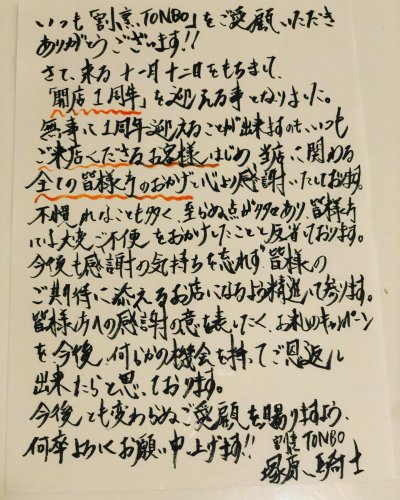 いつも「割烹、TONBO」をご愛顧いただき
ありがとうございます!!
さて、来る十一月十二日をもちまして、
「開店1周年」を迎える事となりました。
無事に1周年迎えることが出来ますのも、いつも
ご来店くださるお客様はじめ、当店に関わる
全ての皆様方のおかげと心より感謝いたしております。
不慣れなことも多く、至らぬ点が多々あり、皆様方
には大変ご不便をおかけしたことと反省しております。
今後も感謝の気持ちを忘れず皆様の
ご期待に添えるお店になるよう精進して参ります。
皆様方への感謝の意を表したく、お礼のキャンペーン
を今後、何らかの機会を持ってご恩返し
出来たらと思っております。
今後とも変わらぬご愛顧を賜りますよう、
何卒よろしくお願い申し上げます!!
割烹TONBO
塚原